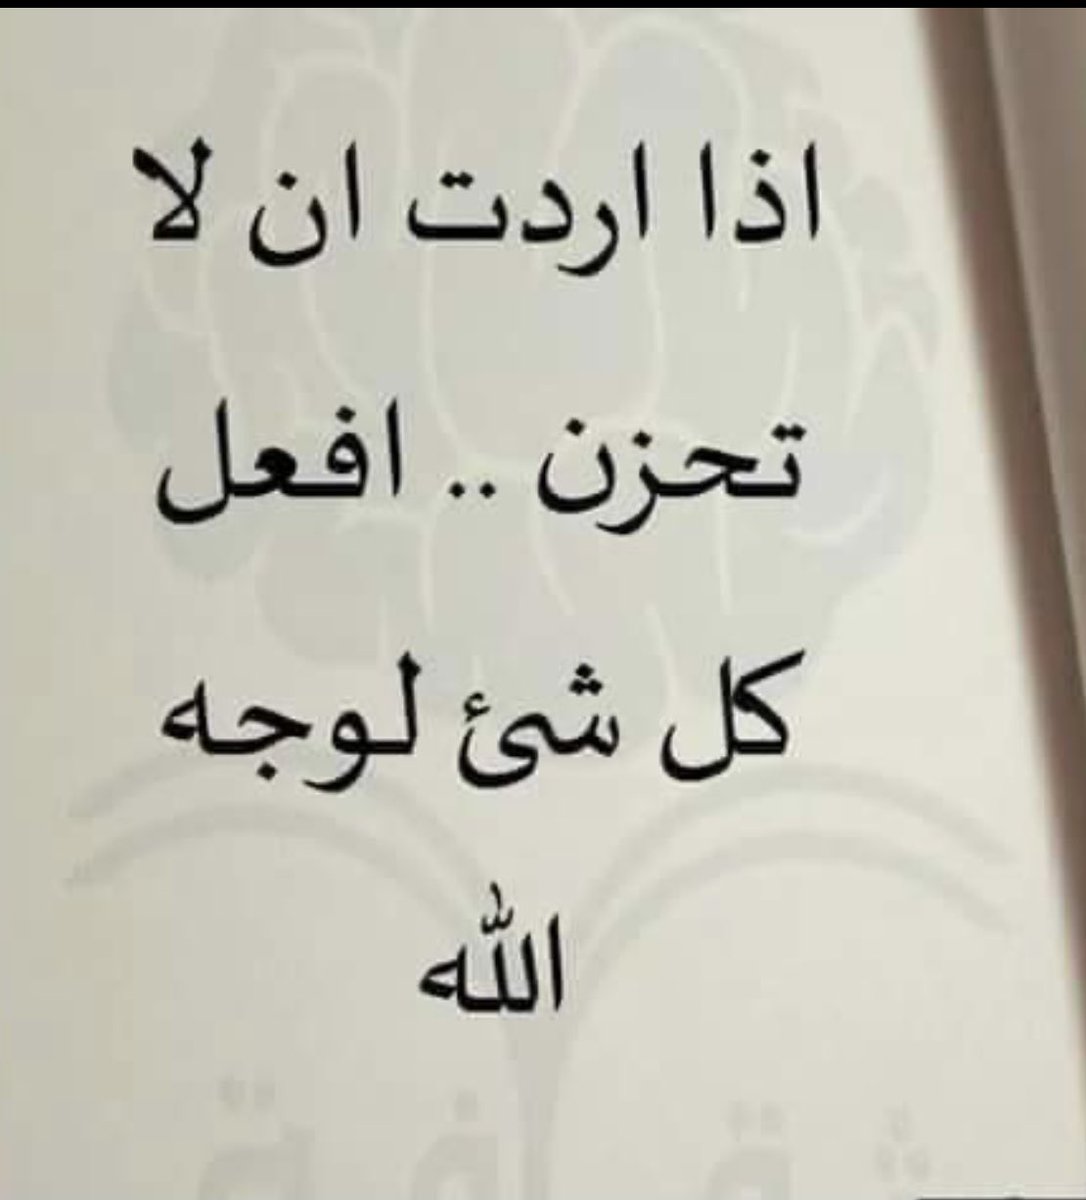 اذا اردت ان لا
تحزن .. افعل
كل شئ لوجه
الله